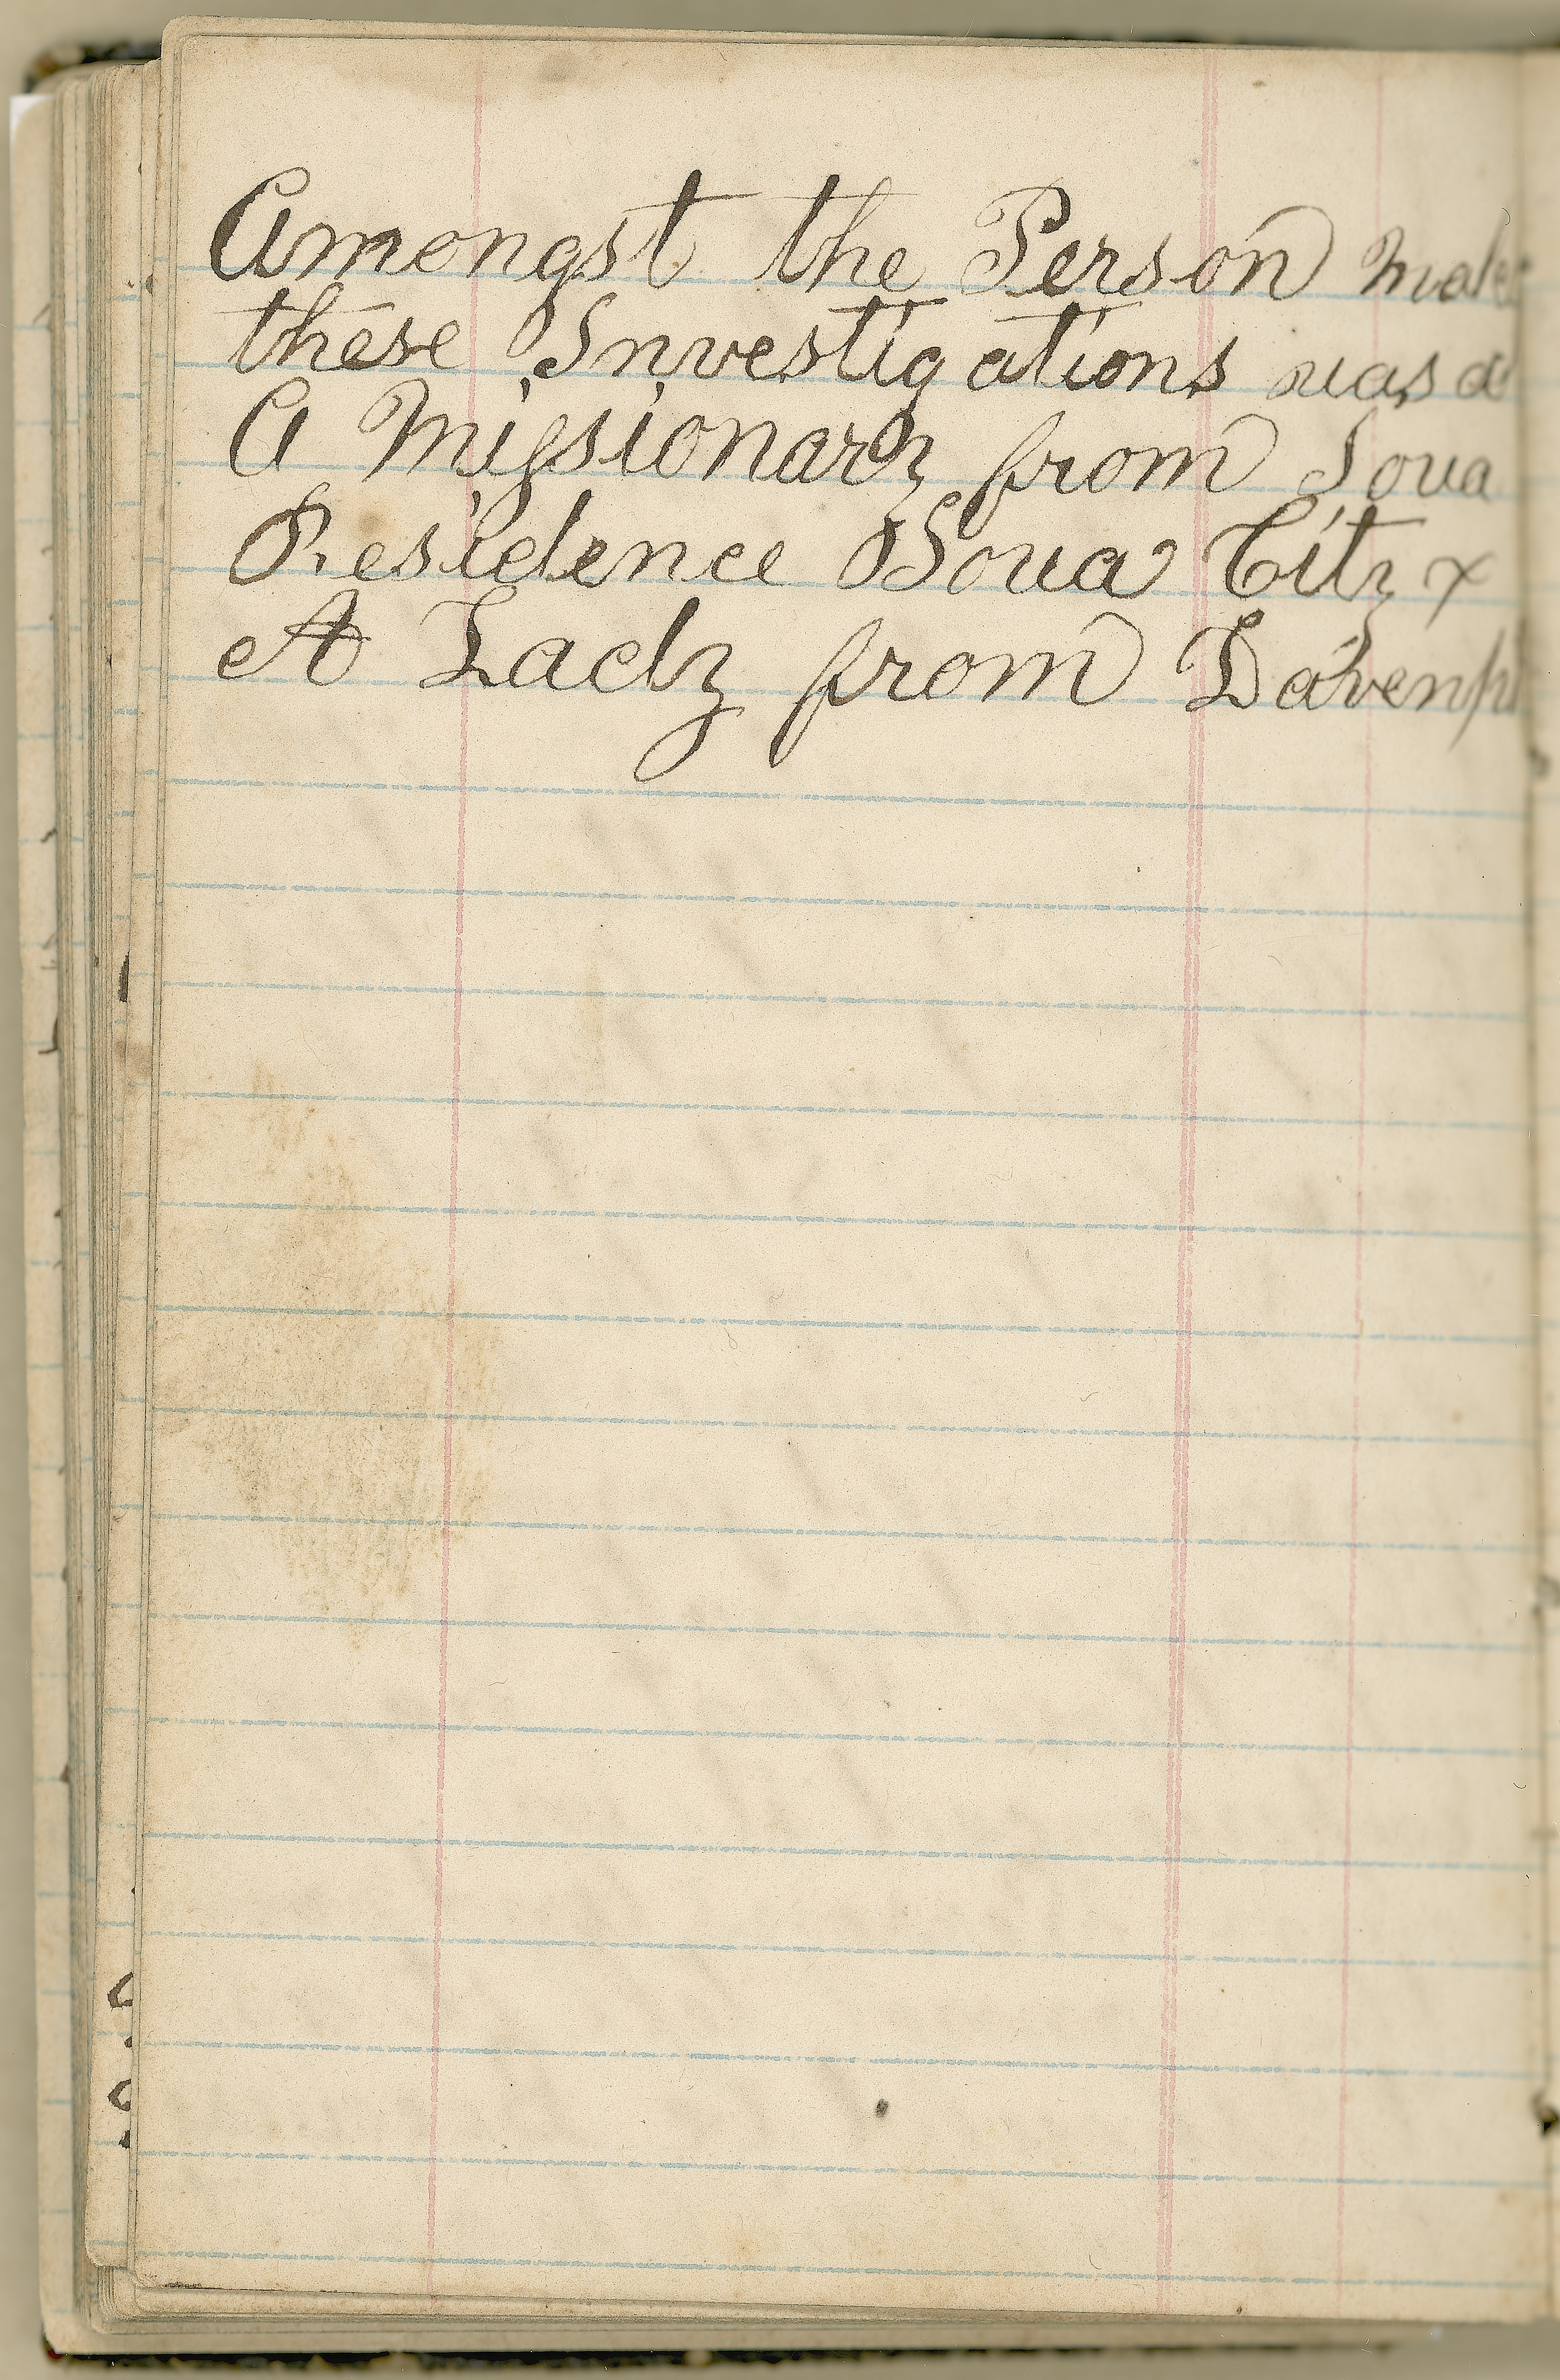 Amongst the Person
these Investigations was a
A Missionary from Iowa
Residence Iowa City &
A Lady from Davenp